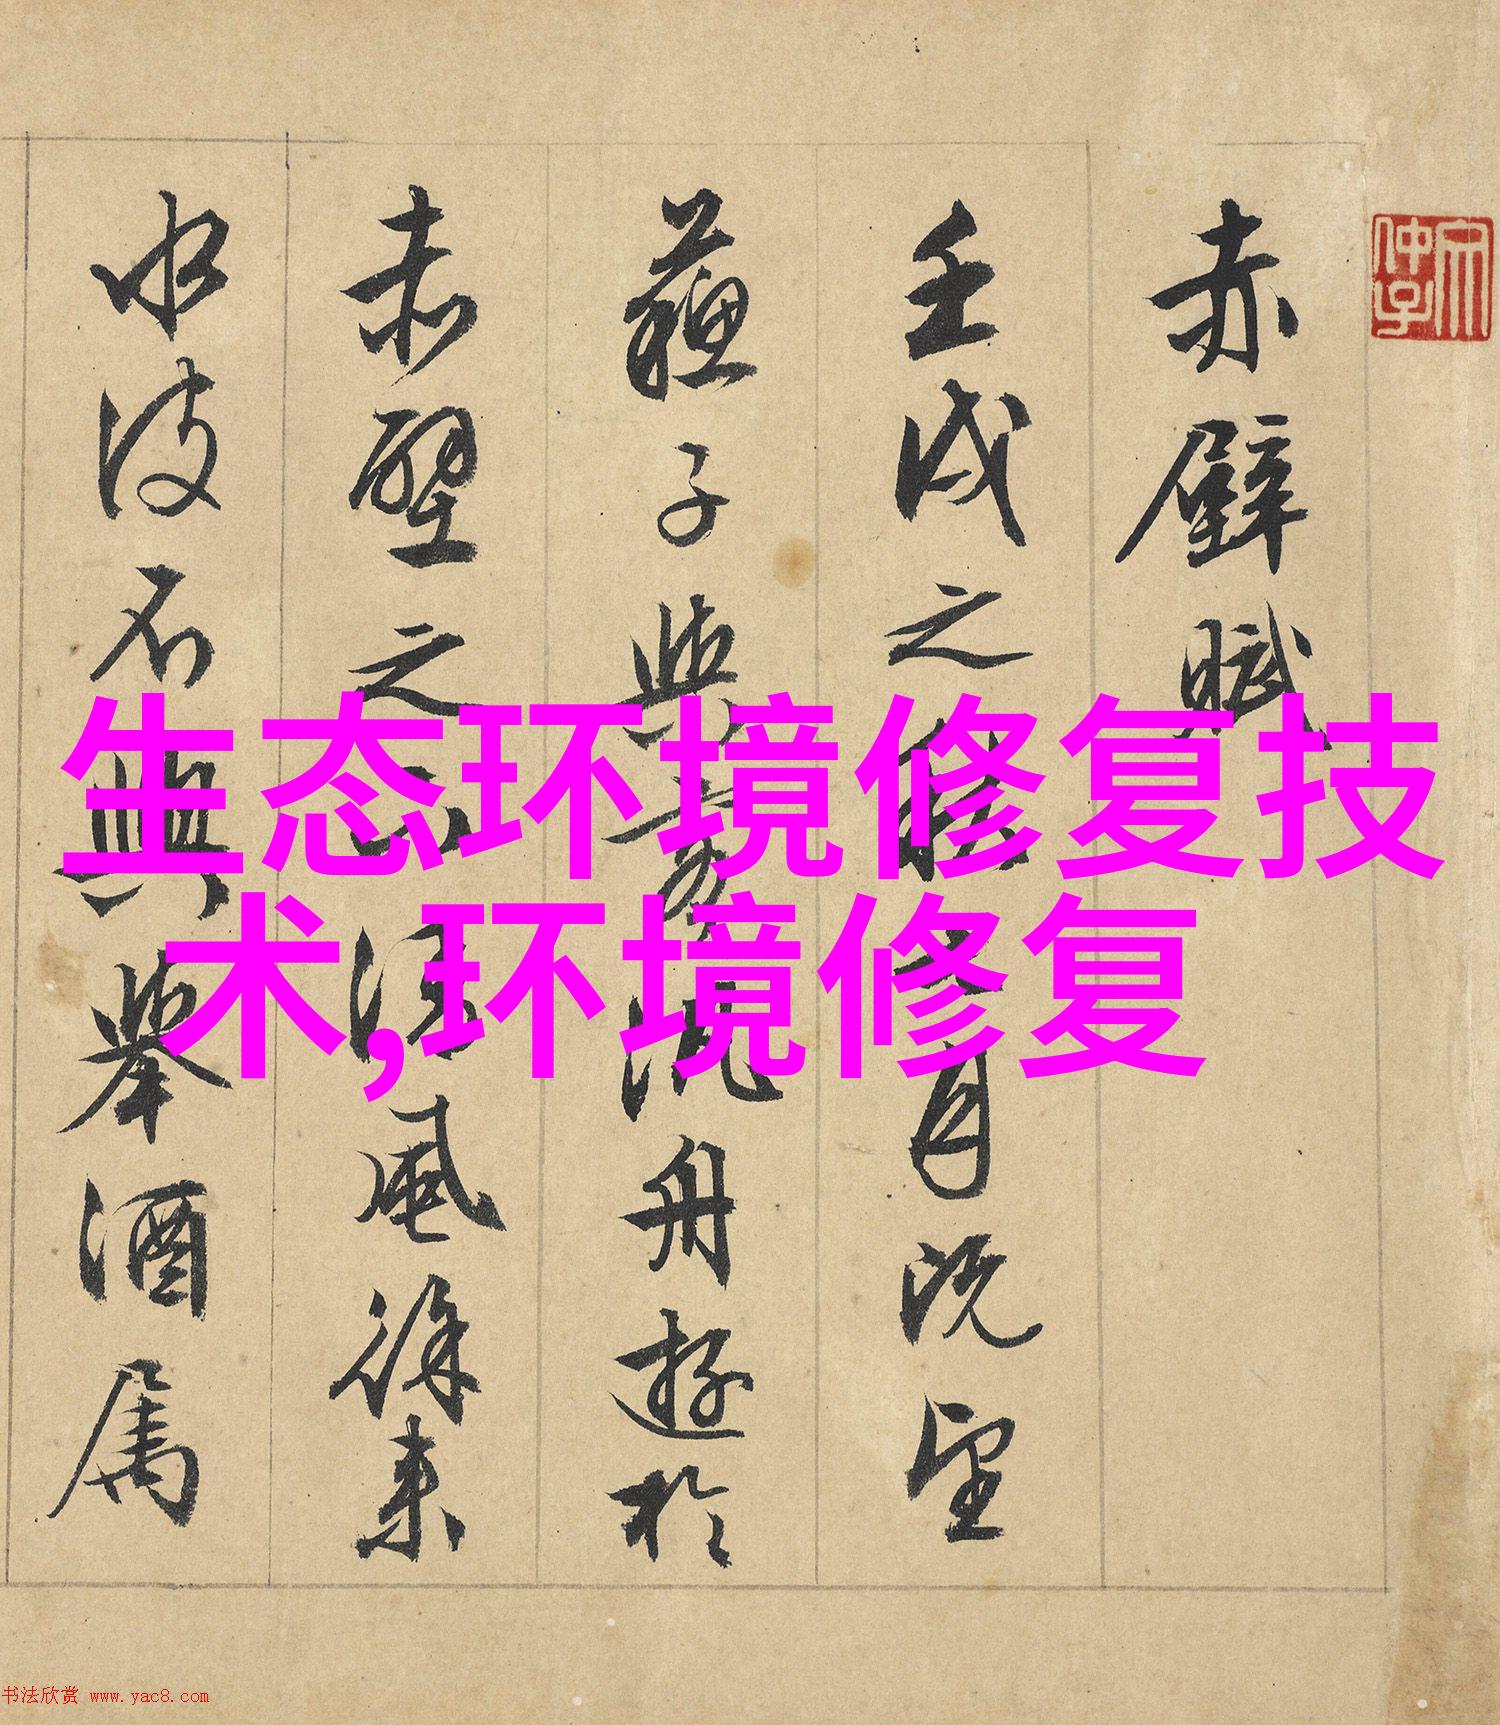 赤壁賦
壬戌之秋七月既望
蘇子與客汎舟遊於
赤壁之下清風徐來
水波不興舉酒屬
生态环境修复技
术,环境修复
书法欣赏 www.yac8.com